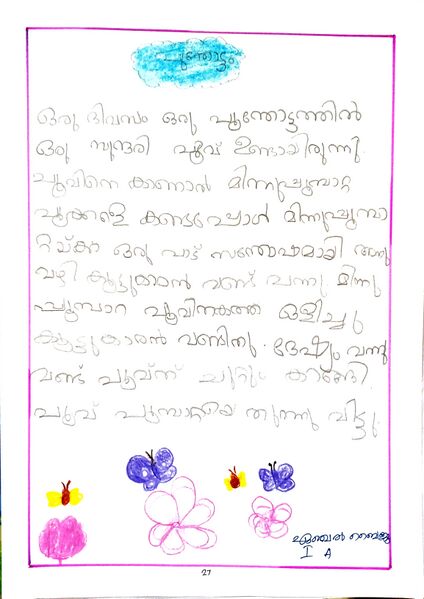 പൂന്തോട്ടം
ഒരു ദിവസം ഒരു പൂന്തോട്ടത്തിൽ
ഒരു സുന്ദരി പൂവ് ഉണ്ടായിരുന്നു.
പൂവിനെ കാണാൻ മിന്നുപൂമ്പാറ്റ
പൂക്കളെ കണ്ടപ്പോൾ മിന്നുപൂമ്പാ
റ്റയ്ക്ക് ഒരു പാട് സന്തോഷമായി അതു
വഴി കൂട്ടുകാരൻ വണ്ട് വന്നു. മിന്നു
പൂമ്പാറ്റ പൂവിനകത്ത് ഒളിച്ചു
കൂട്ടുകാരൻ വണ്ടിനു. ദേഷ്യം വന്നു
വണ്ട് പൂവ്ന് ചുറ്റും കറങ്ങി.
പൂവ് പൂമ്പാറ്റയെ തുന്നു വിട്ടു.
ഏഞ്ചൽ ബൈജു
I A
27